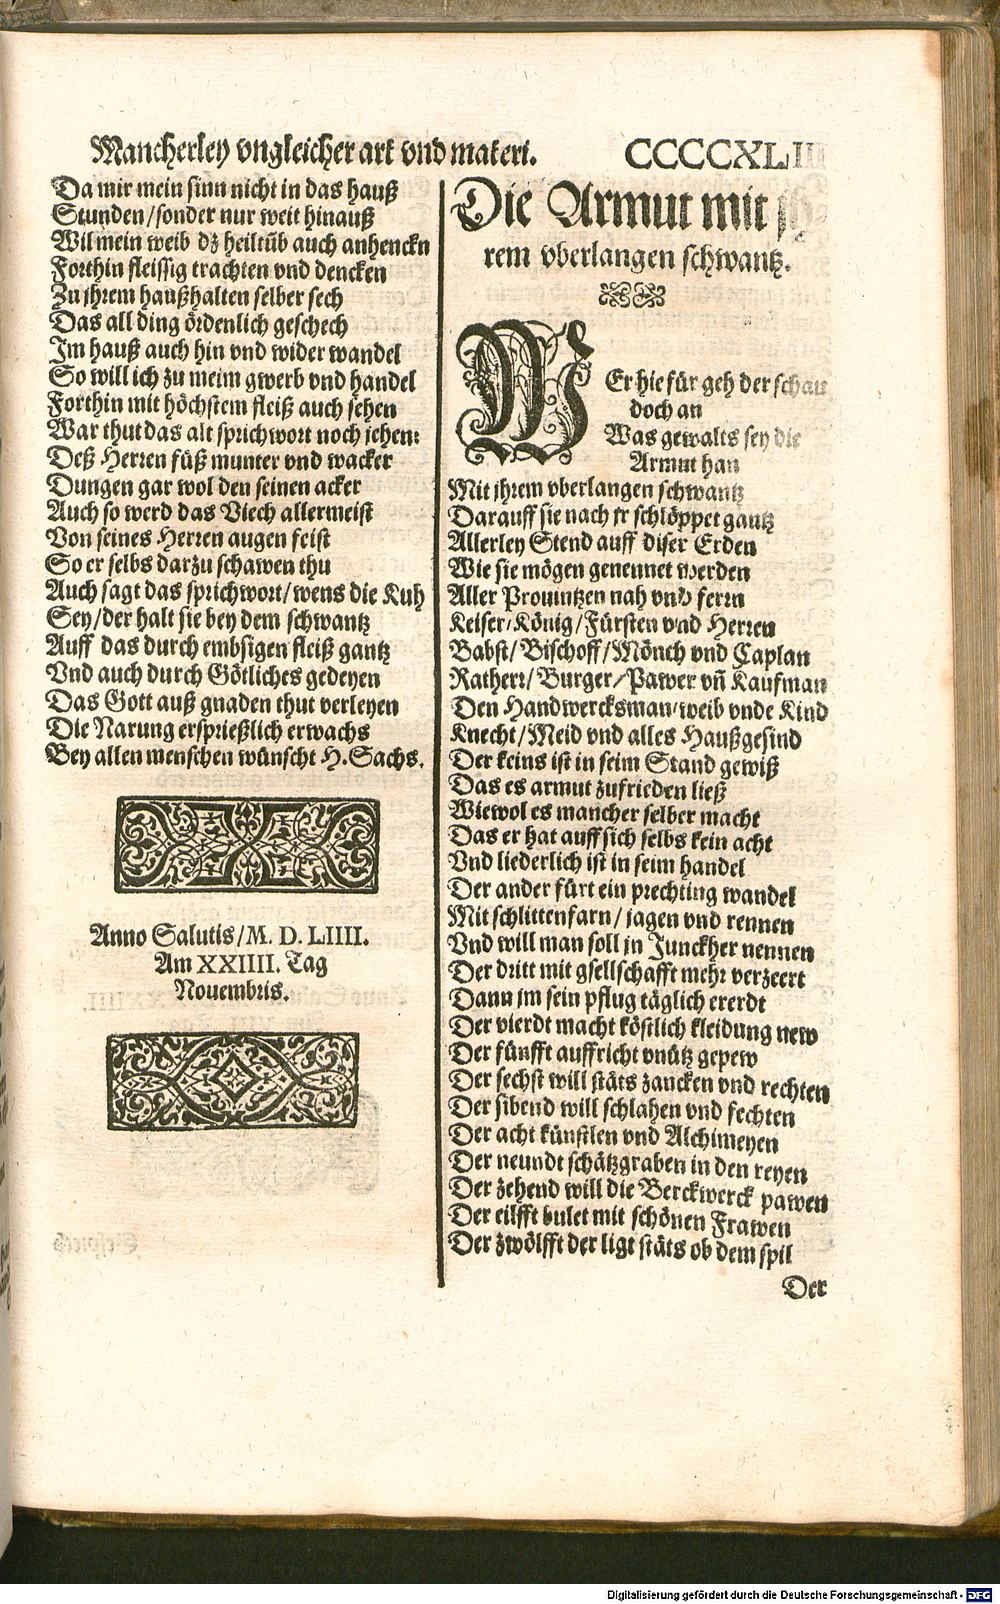 Mancherley vngleicher art vnd materi.
CCCCXLIII
Da mir mein sinn nicht in das hauß
Stunden/sonder nur weit hinauß
Wil mein weib dz heiltũb auch anhenckn
Forthin fleissig trachten vnd dencken
Zu jhrem haußhalten selber sech
Das all ding ördenlich geschech
Im hauß auch hin vnd wider wandel
So will ich zu meim gwerb vnd handel
Forthin mit höchstem fleiß auch sehen
War thut das alt sprichwort noch jehen:
Deß Herren füß munter vnd wacker
Dungen gar wol den seinen acker
Auch so werd das Viech allermeist
Von seines Herren augen feist
So er selbs darzu schawen thu
Auch sagt das sprichwort/wens die Kuh
Sey/der halt sie bey dem schwantz
Auff das durch embsigen fleiß gantz
Vnd auch durch Götliches gedeyen
Das Gott auß gnaden thut verleyen
Die Narung ersprießlich erwachs
Bey allen menschen wünscht H. Sachs.
Anno Salutis/M. D. LIIII.
Am XXIIII. Tag
Nouembris.
Die Armut mit jh
rem vberlangen schwantz.
WEr hie für geh der schau
doch an
Was gewalts sey die
Armut han
Mit jhrem vberlangen schwantz
Darauff sie nach jr schlöppet gantz
Allerley Stend auff diser Erden
Wie sie mögen genennet werden
Aller Prouintzen nah vnd ferrn
Keiser/König/Fürsten vnd Herren
Babst/Bischoff/Mönch vnd Caplan
Ratherr/Burger/Pawer vñ Kaufman
Den Handwercksman/weib vnde Kind
Knecht/Meid vnd alles Haußgesind
Der keins ist in seim Stand gewiß
Das es armut zufrieden ließ
Wiewol es mancher selber macht
Das er hat auff sich selbs kein acht
Vnd liederlich ist in seim handel
Der ander fürt ein prechting wandel
Mit schlittenfarn/jagen vnd rennen
Vnd will man soll jn Junckher nennen
Der dritt mit gsellschafft mehr verzeert
Dann jm sein pflug täglich ererdt
Der vierdt macht köstlich kleidung new
Der fünfft auffricht vnütz gepew
Der sechst will stäts zancken vnd rechten
Der sibend will schlahen vnd fechten
Der acht künstlen vnd Alchimeyen
Der neundt schätzgraben in den reyen
Der zehend will die Berckwerck pawen
Der eilfft bulet mit schönen Frawen
Der zwölfft der ligt stäts ob dem spil
Der
Digitalisierung gefördert durch die Deutsche Forschungsgemeinschaft - DFG